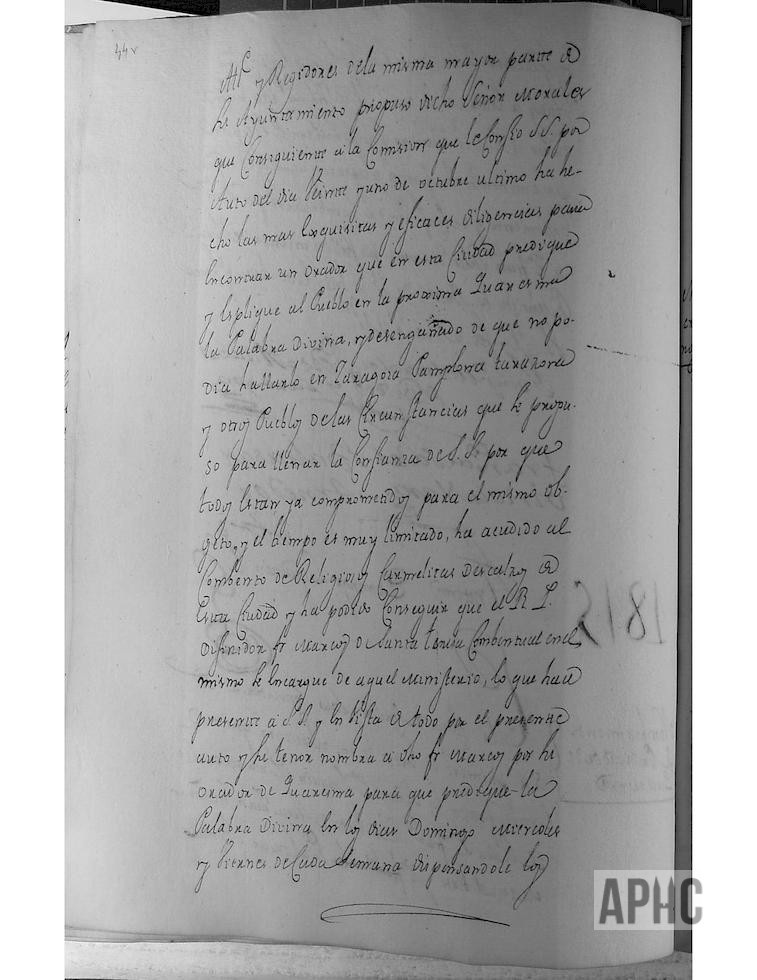 44v
Alte y Regidores dela misma mayor parte de
su Ayuntamiento propuso dicho Señor Morales
que Consiguiente a la Comision que le Confio S.S. por
Auto del dia Veinte yuno de octubre ultimo ha he-
cho las mas Exquisitas y eficaces diligencias para
Encontrar un orador que en esta Ciudad predique
y Esplique al Pueblo en la proxima Quaresma
la Palabra Divina, y desengañado de que no po-
dia hallarlo en Zaragoza Pamplona tarazona
y otros Pueblos de las Circunstancias que se propu-
so para llenar la Confianza de S.S. por que
todos Estan ya comprometidos para el mismo ob-
geto, y el tiempo es muy limitado, ha acudido al
Combento de Religiosos Carmelitas Descalzos de
Esta Ciudad y ha podido Conseguir que el R. P.
Difinidor fr Marcos de Santa teresa Combentual en el
mismo se Encargue de aquel Ministerio, lo que hace
presente a S.S. y En Vista de todo por el presente
auto y su tenor nombra a dho fr Marcos por su
orador de Quaresma para que predique la
Palabra Divina En los dias Domingo Miercoles
y Viernes de Cada Semana dispensandole los
1815
APHC